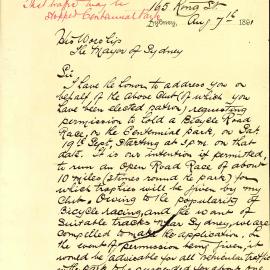 this traffic may be
stopped Centennial Park
163 King St
Sydney, Aug 7th 1891
His Worship
The Mayor of Sydney
Sir
I have the honor to address you on
behalf of the above Club (of which you
have been elected patron), requesting
permission to hold a Bicycle Road
Race, on the Centennial park, on Sat.
19th Sept, starting at 3 p.m. on that
date. It is our intention if permitted,
to run an Open Road Race of about
10 miles (3 times round the park) for
which trophies will be given by my
Club. Owing to the popularity of
Bicycle racing, and the want of
suitable tracks near Sydney, we are
compelled to make the application. In
the event of permission being given, it
would be advisable for all vehicular traffic
to the park to be suspended for about one